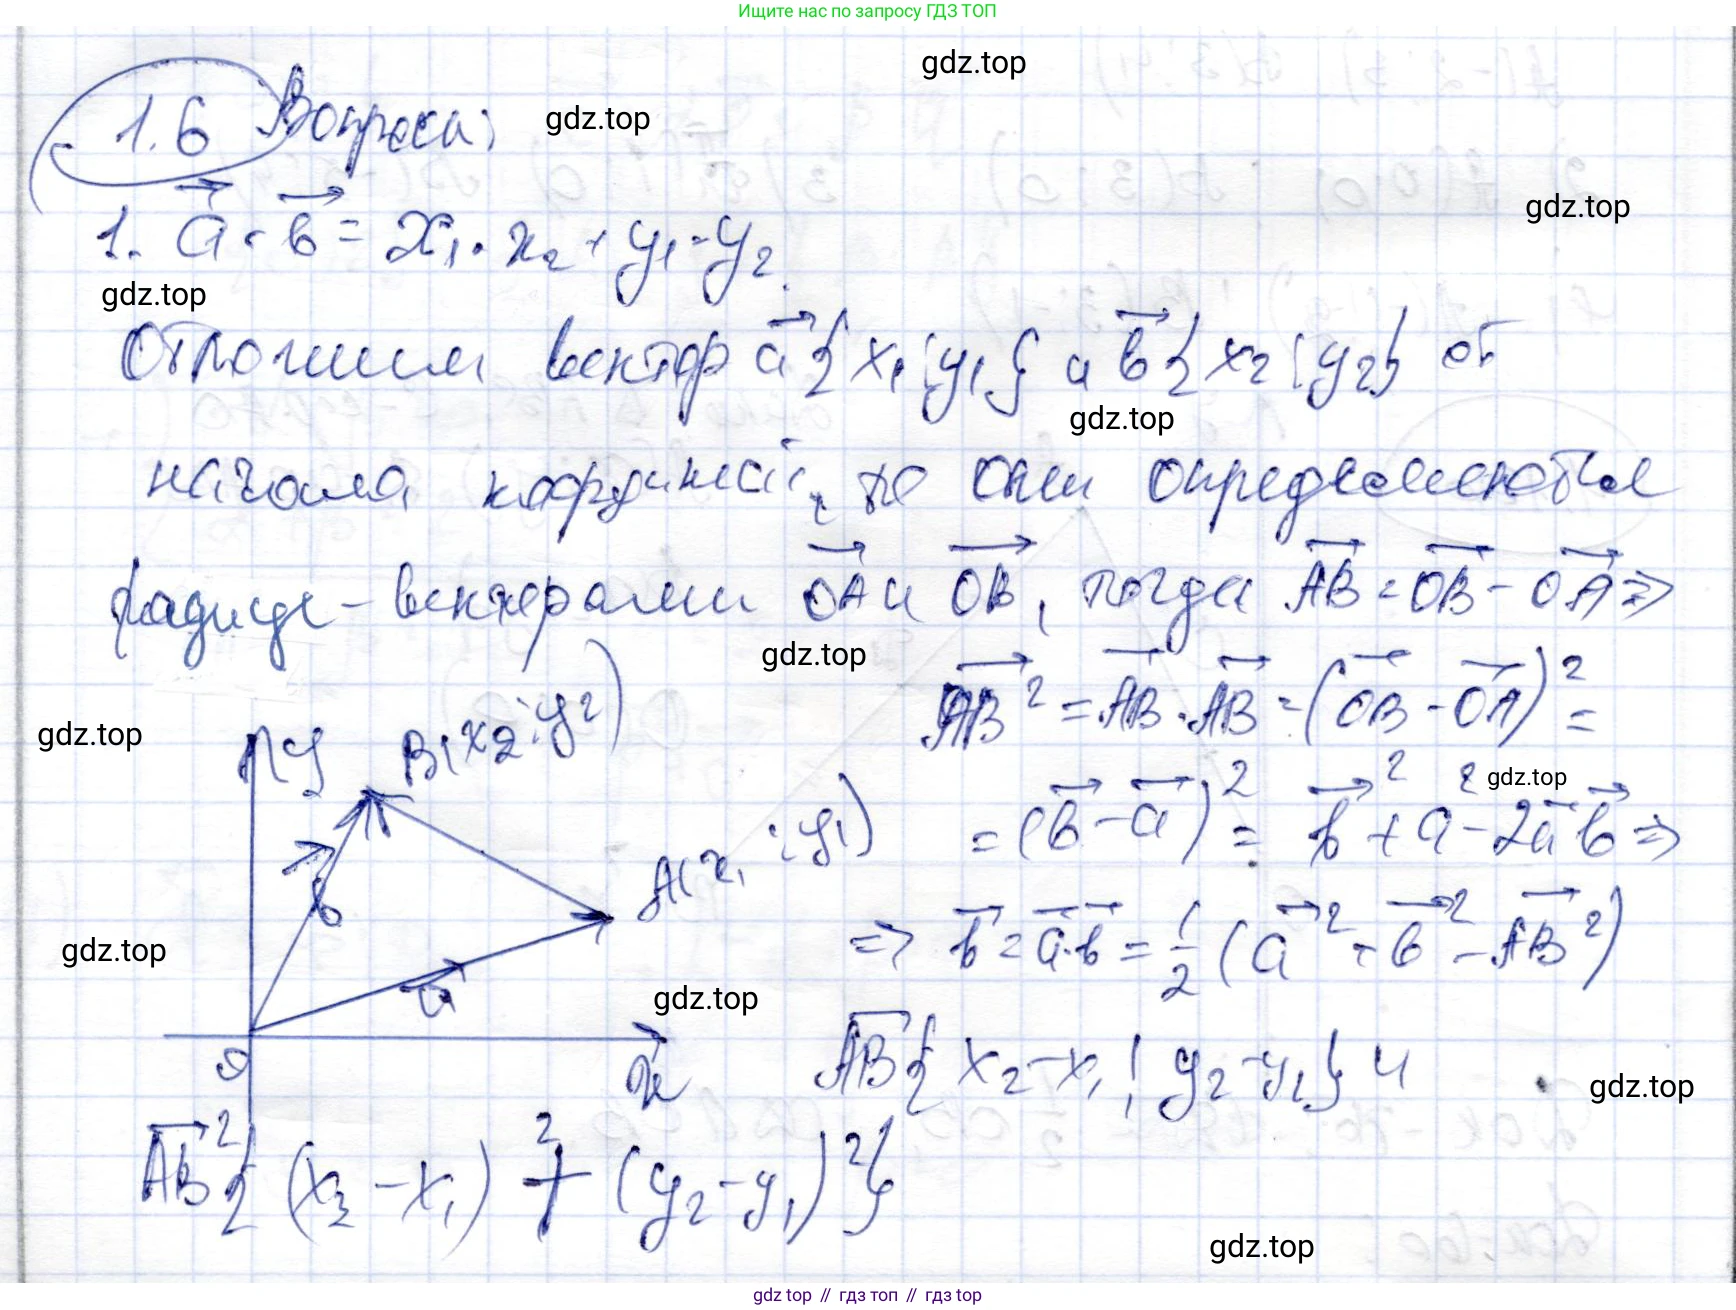 Ищите нас по запросу ГДЗ ТОП
gdz.top
1.6 Вопросы:
gdz.top
gdz.top
1. a · b = x₁ · x₂ + y₁ · y₂.
gdz.top
Отложим вектор a {x₁; y₁} и b {x₂; y₂} от
gdz.top
начала координат, то они определяются
радиус-векторами OA и OB, тогда AB = OB - OA ⇒
gdz.top
AB² = AB · AB = (OB - OA)² =
gdz.top
y B(x₂; y₂)
gdz.top
= (b - a)² = b² + a² - 2a b ⇒
A(x₁; y₁)
b
gdz.top
⇒ b = a · b = 1/2 (a² + b² - AB²)
a
gdz.top
0 x
AB {x₂ - x₁; y₂ - y₁} и
gdz.top
AB² { (x₂ - x₁)² + (y₂ - y₁)² }
gdz.top
gdz top // гдз топ // гдз top